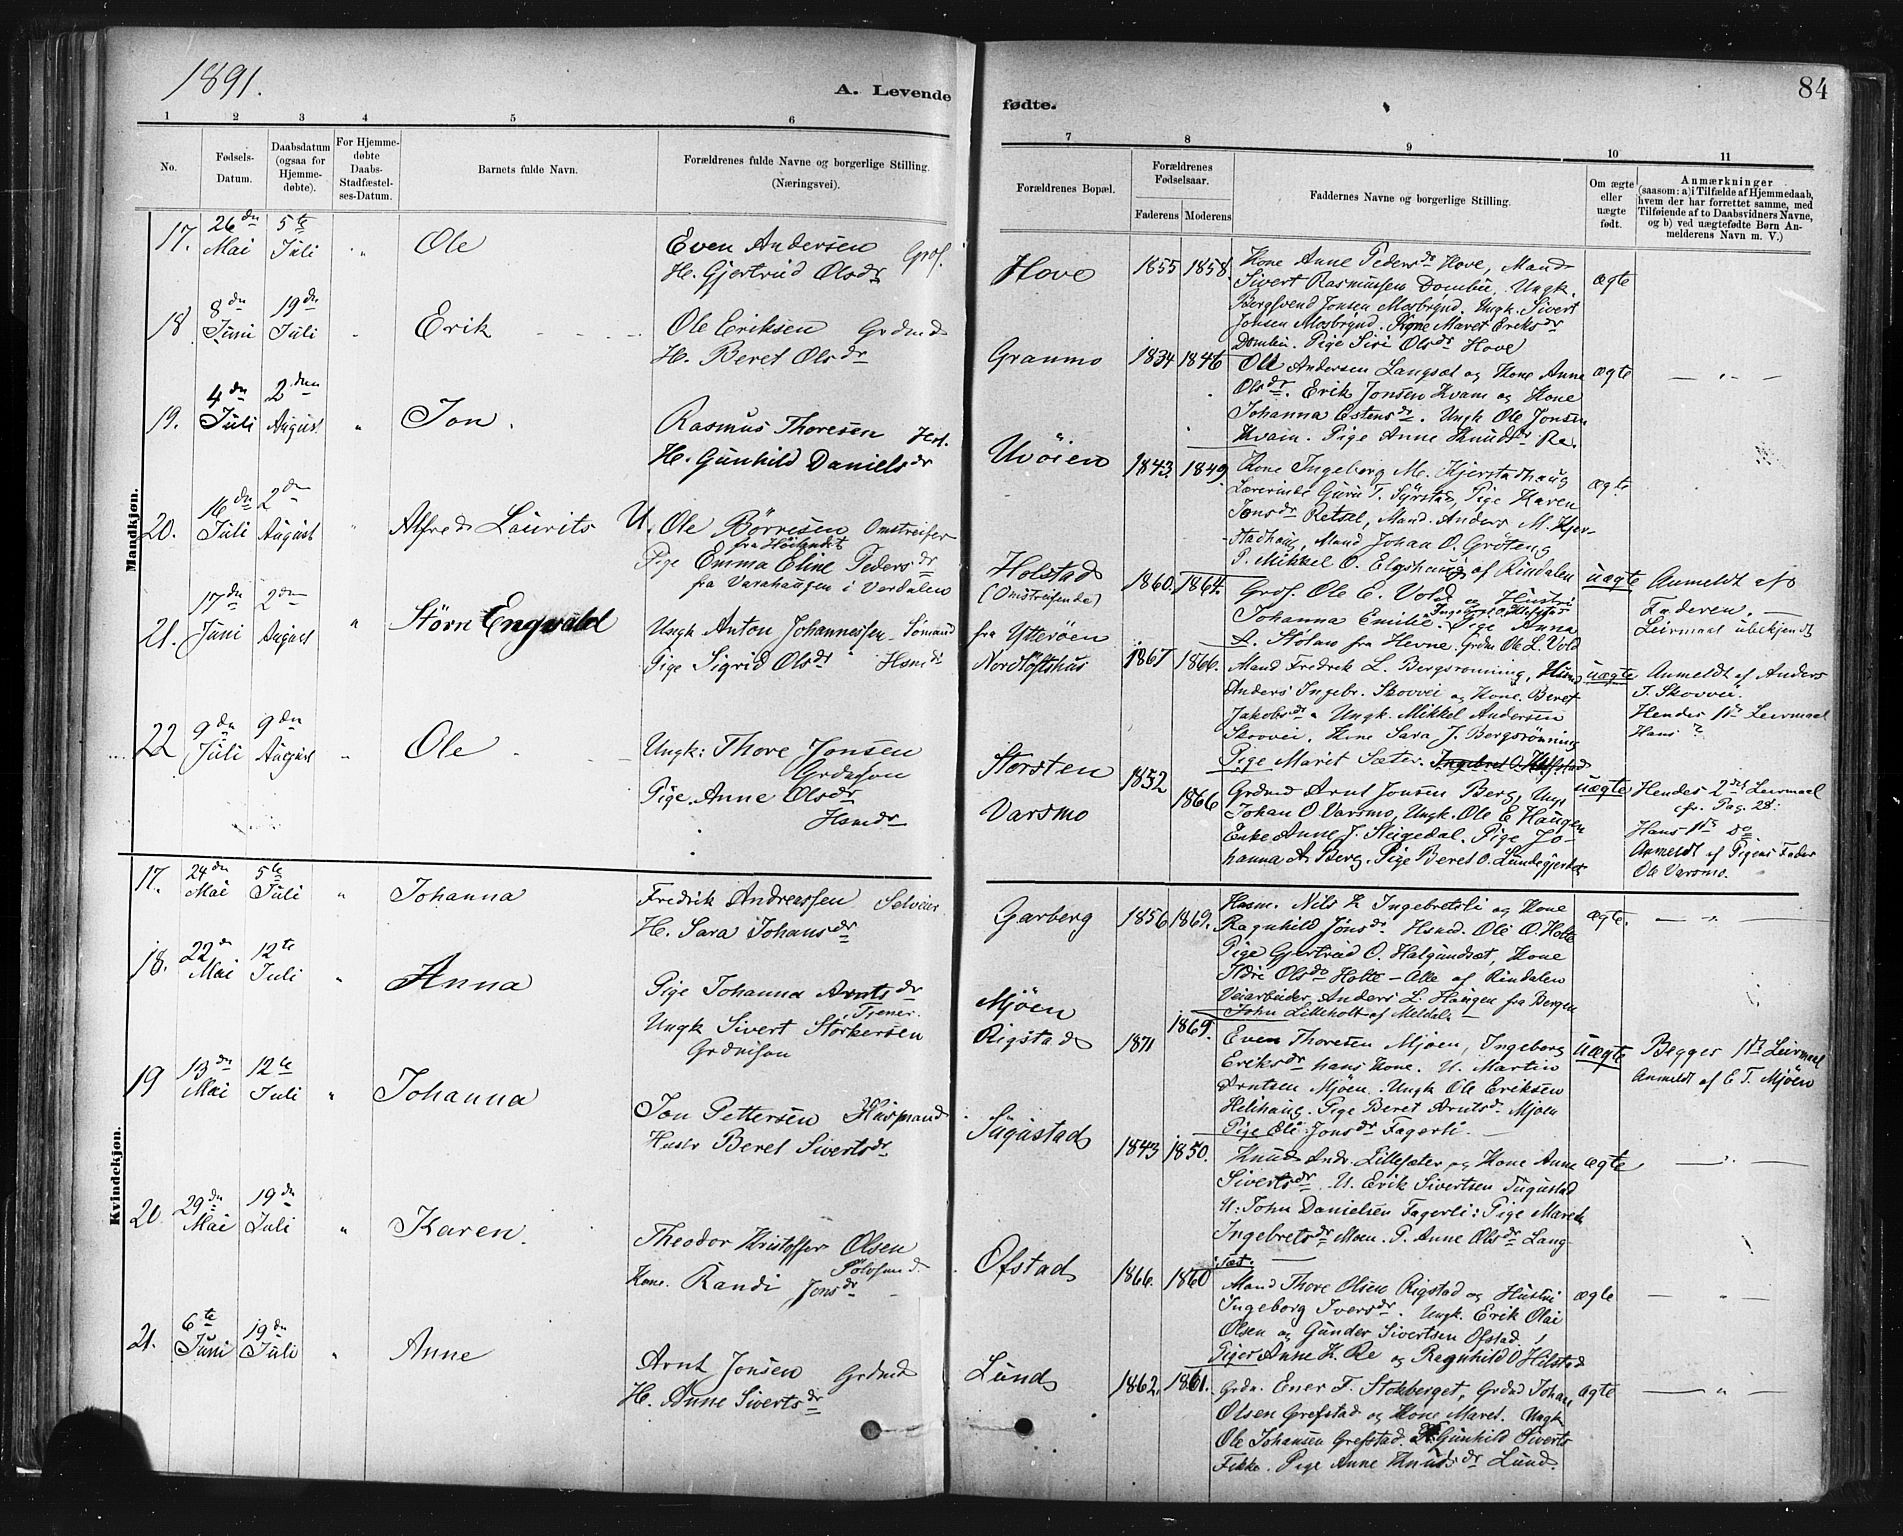 1891.
A. Levende
fødte.
84
1 2 3 4 5 6
7 8 9 10 11
No.
Fødsels-
Datum.
Daabsdatum
(ogsaa for
Hjemme-
døbte).
For Hjemme-
døbte
Daabs-
Stadfæstel-
ses-Datum.
Barnets fulde Navn.
Forældrenes fulde Navne og borgerlige Stilling.
(Næringsvei).
Forældrenes Bopæl.
Forældrenes
Fødselsaar.
Faderens
Moderens
Faddernes Navne og borgerlige Stilling.
Om ægte
eller
uægte
født.
Anmærkninger
(saasom: a) i Tilfælde af Hjemmedaab,
hvem der har forrettet samme, med
Tilføiende af to Daabsvidners Navne,
og b) ved uægtefødte Børn An-
melderens Navn m. V.)
Mandkjøn.
17. 26de Mai 5te Juli " Ole
Even Andersen Grdf.
H. Gjertrud Olsdr
Hove 1855 1858.
Kone Anne Pedersdr Hove, Mand
Sivert Rasmussen Dombu. Ungk.
Bergsvend Jonsen Mosbrynd. Ungk. Sivert
Jonsen Mosbrynd. Pige Maret Eriksdr
Dombu. Pige Siri Olsdr Hove
ægte
18 8de Juni 19de Juli " Erik
Ole Eriksen Grdmd
H. Beret Olsdr
Granmo 1834 1846
Ole Andersen Langsæt og Kone Anne
Olsdr. Erik Jonsen Kvam og Kone
Johanna Estensdr. Ungk Ole Jonsen
Kvam. Pige Anne Knudsdr Re.
ægte — " —
19. 4de Juli 2den August " Jon.
Rasmus Thoresen Hsf.
H. Gunhild Danielsdr
Uvöien 1843. 1849.
Kone Ingeborg M. Kjerstadhaug
Lærerinde Guru T. Syrstad, Pige Karen
Jonsdr Retsel, Mand. Anders M. Kjer-
stadhaug, Mand Johan O. Gröteng
P. Mikkel O. Elgshaug af Rindalen
ægte
20. 16de Juli 2den August " Alfred Laurits
U. Ole Börresen Omstreifer
fra Höilandet
Pige Emma Eline Pedersdr
fra Varahaugen i Verdalen
Holstad
(Omstreifende)
1860. 1864.
Grdf. Ole E. Vold og Hustru
Johanna Emilie. Pige Anna
A. Stölan fra Hevne. Grdm Ole L. Vold
uægte
Anmeldt af
Faderen. —
Leirmaal ubekjendt
21. 17de Juni 2den August " Störn Engvald
Ungk Anton Johannessen Sömand
Pige Sigrid Olsdr Hsmdr
fra Ytteröen
Nordlöftshus
1867 1866.
Mand Fredrik L. Bergsrönning,
Anders Ingebr. Skovvei og Kone Beret
Jakobsdr. Ungk. Mikkel Andersen
Skovvei, Kone Sara J. Bergsrönning
Pige Marit Sæter.
uægte
Anmeldt af Anders
T. Skovvei.
Hendes 1ste Leirmaal
Hans ?
22 9de Juli 9de August " Ole
Ungk: Thore Jonsen
Grdmsön
Pige Anne Olsdr
Hsmdr
Storsten
Varsmo
1852
1866
Grdmd Arnt Jonsen Berg, Ungk
Johan O. Varsmo, Ungk. Ole E Haugen
Enke Anne J. Steigedal. Pige Jo-
hanna A. Berg. Pige Beret O. Lundegjerdet
uægte
Hendes 2det Leirmaal
cfr. Pag. 28.
Hans 1ste do
Anmeldt af Pigens Fader
Ole Varsmo.
Kvindekjøn.
17. 24de Mai 5te Juli " Johanna
Fredrik Andreassen Selveier
H. Sara Johansdr
Garberg 1856 1869.
Husm. Nils K Ingebretsli og Kone
Ragnhild Jönsdr. Hsmd. Ole O. Holte
Pige Gjertrud O. Halgundset, Kone
Ildri Olsdr Holte — Alle af Rindalen
Veiarbeider Anders L. Haugen fra Bergen
John Lilleholt af Meldal. —
ægte. — " —
18. 22de Mai 12te Juli " Anna
Pige Johanna Arntsdr
Tjener.
Ungk Sivert Störkersen
Grdmsön
Mjöen
Rigstad
1871 1869.
Even Thoresen Mjöen, Ingeborg
Eriksdr hans Kone. U. Martin
Arntsen Mjöen. Ungk Ole Eriksen
Helihaug. Pige Beret Arntsdr Mjöen
Pige Eli Jonsdr Fagerli. —
uægte
Begges 1ste Leirmaal
Anmeldt af E T. Mjöen
19 13de Mai 12te Juli " Johanna
Jon Pettersen Husmand
Hustr Beret Sivertsdr
Jugustad 1843 1850.
Knud Andr. Lillesæter og Kone Anne
Sivertsdr. U. Erik Sivertsen Jugustad
U: John Danielsen Fagerli: Pige Maret
Ingebretsdr Moen. P. Anne Olsdr Lang-
sæt. —
ægte — " —
20. 29de Mai 19de Juli " Karen.
Theodor Kristoffer Olsen
Kone. Randi Jonsdr
Ofstad 1866. 1860
Mand Thore Olsen Rigstad og Hustru
Ingeborg Iversdr. Ungk. Erik Olai
Olsen og Gunder Sivertsen Ofstad,
Piger Anne K. Re og Ragnhild O Hilstad
ægte — " —
21. 6te Juni 19de Juli " Anne
Arnt Jonsen Grdmd
H. Anne Sivertsdr
Lund 1862. 1861.
Grdm. Ener F. Stokberget, Grdmd Johan
Olsen Grefstad og Kone Maret. Ungk.
Ole Johansen Grefstad Gunhild Siverts
Fikke. Pige Anne Knudsdr Lund.
ægte — " —